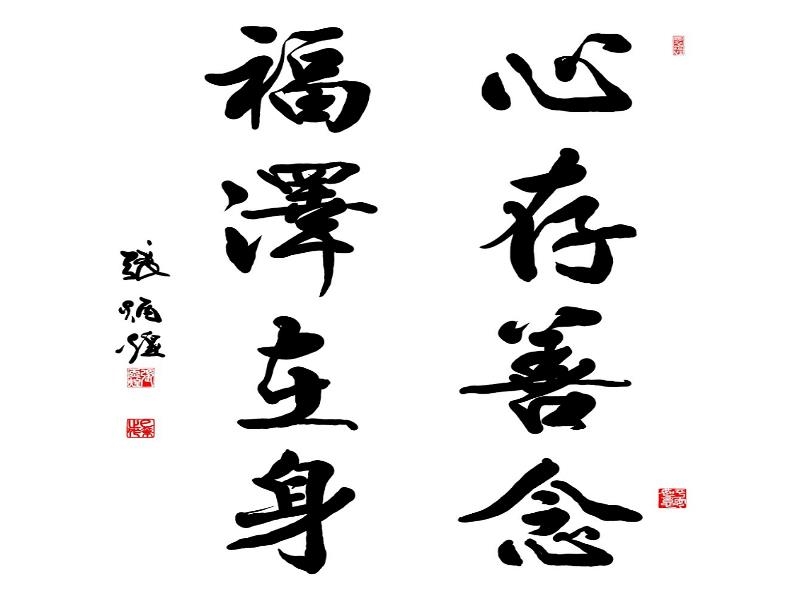 心存善念
福澤在身